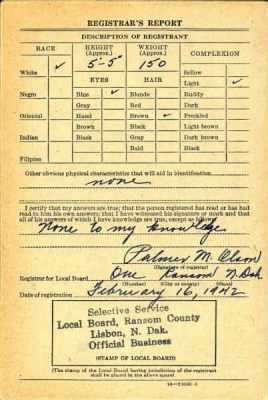 REGISTRAR'S REPORT
DESCRIPTION OF REGISTRANT
RACE HEIGHT (Approx.) WEIGHT (Approx.) COMPLEXION
✓ 5'-5" 150
White Sallow
EYES HAIR Light ✓
Negro Blue ✓ Blonde Ruddy
Gray Red Dark
Oriental Hazel Brown ✓ Freckled
Brown Black Light brown
Indian Black Gray Dark brown
Bald Black
Filipino
Other obvious physical characteristics that will aid in identification
none
I certify that my answers are true; that the person registered has read or has had
read to him his own answers; that I have witnessed his signature or mark and that
all of his answers of which I have knowledge are true, except as follows:
None to my knowledge
Palmer M. Olson
(Signature of registrar)
Registrar for Local Board One Ransom N. Dak
(Number) (City or county) (State)
Date of registration February 16, 1942
Selective Service
Local Board, Ransom County
Lisbon, N. Dak.
Official Business
(STAMP OF LOCAL BOARD)
(The stamp of the Local Board having jurisdiction of the registrant
shall be placed in the above space)